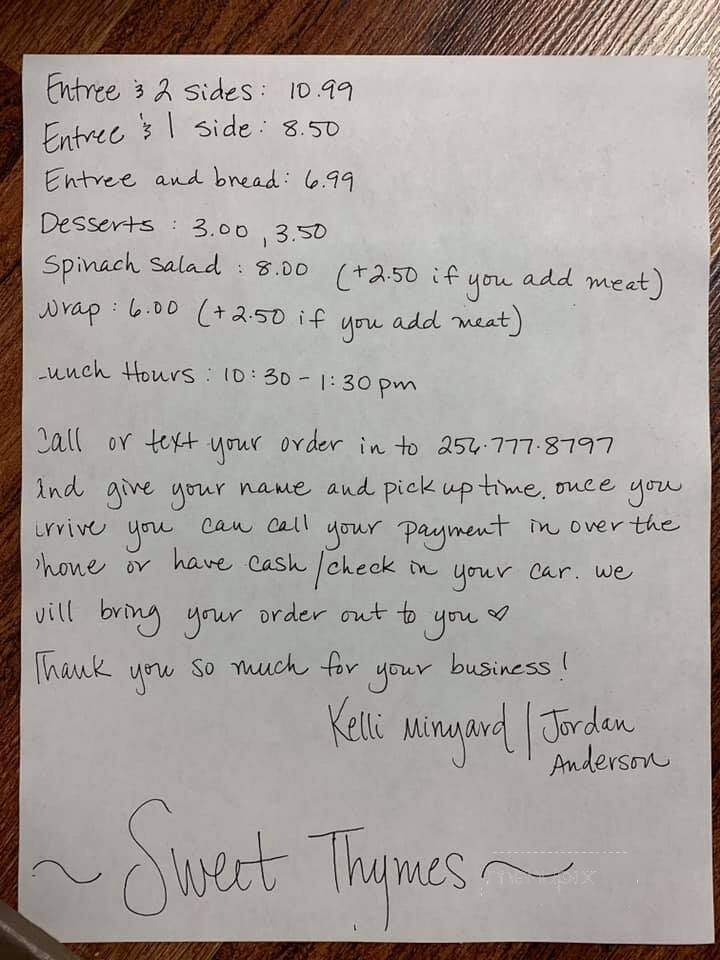 Entree & 2 sides: 10.99
Entree & 1 side: 8.50
Entree and bread: 6.99
Desserts : 3.00, 3.50
Spinach Salad : 8.00 (+2.50 if you add meat)
Wrap : 6.00 (+2.50 if you add meat)
Lunch Hours : 10:30 - 1:30 pm
Call or text your order in to 256.777.8797
And give your name and pick up time. once you
arrive you can call your payment in over the
phone or have cash/check in your car. we
will bring your order out to you ♡
Thank you so much for your business!
Kelli Minyard / Jordan
Anderson
~ Sweet Thymes ~
menupix